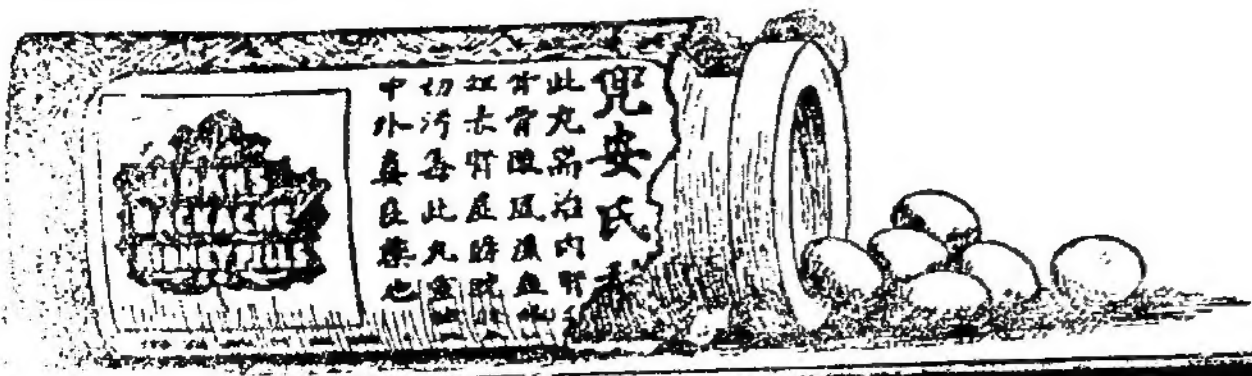 DOANS
BACKACHE
KIDNEY PILLS
兜安氏
此丸耑治内腎
背骨酸风濕血
去腎膀
切污毒此丸
中外真良藥也